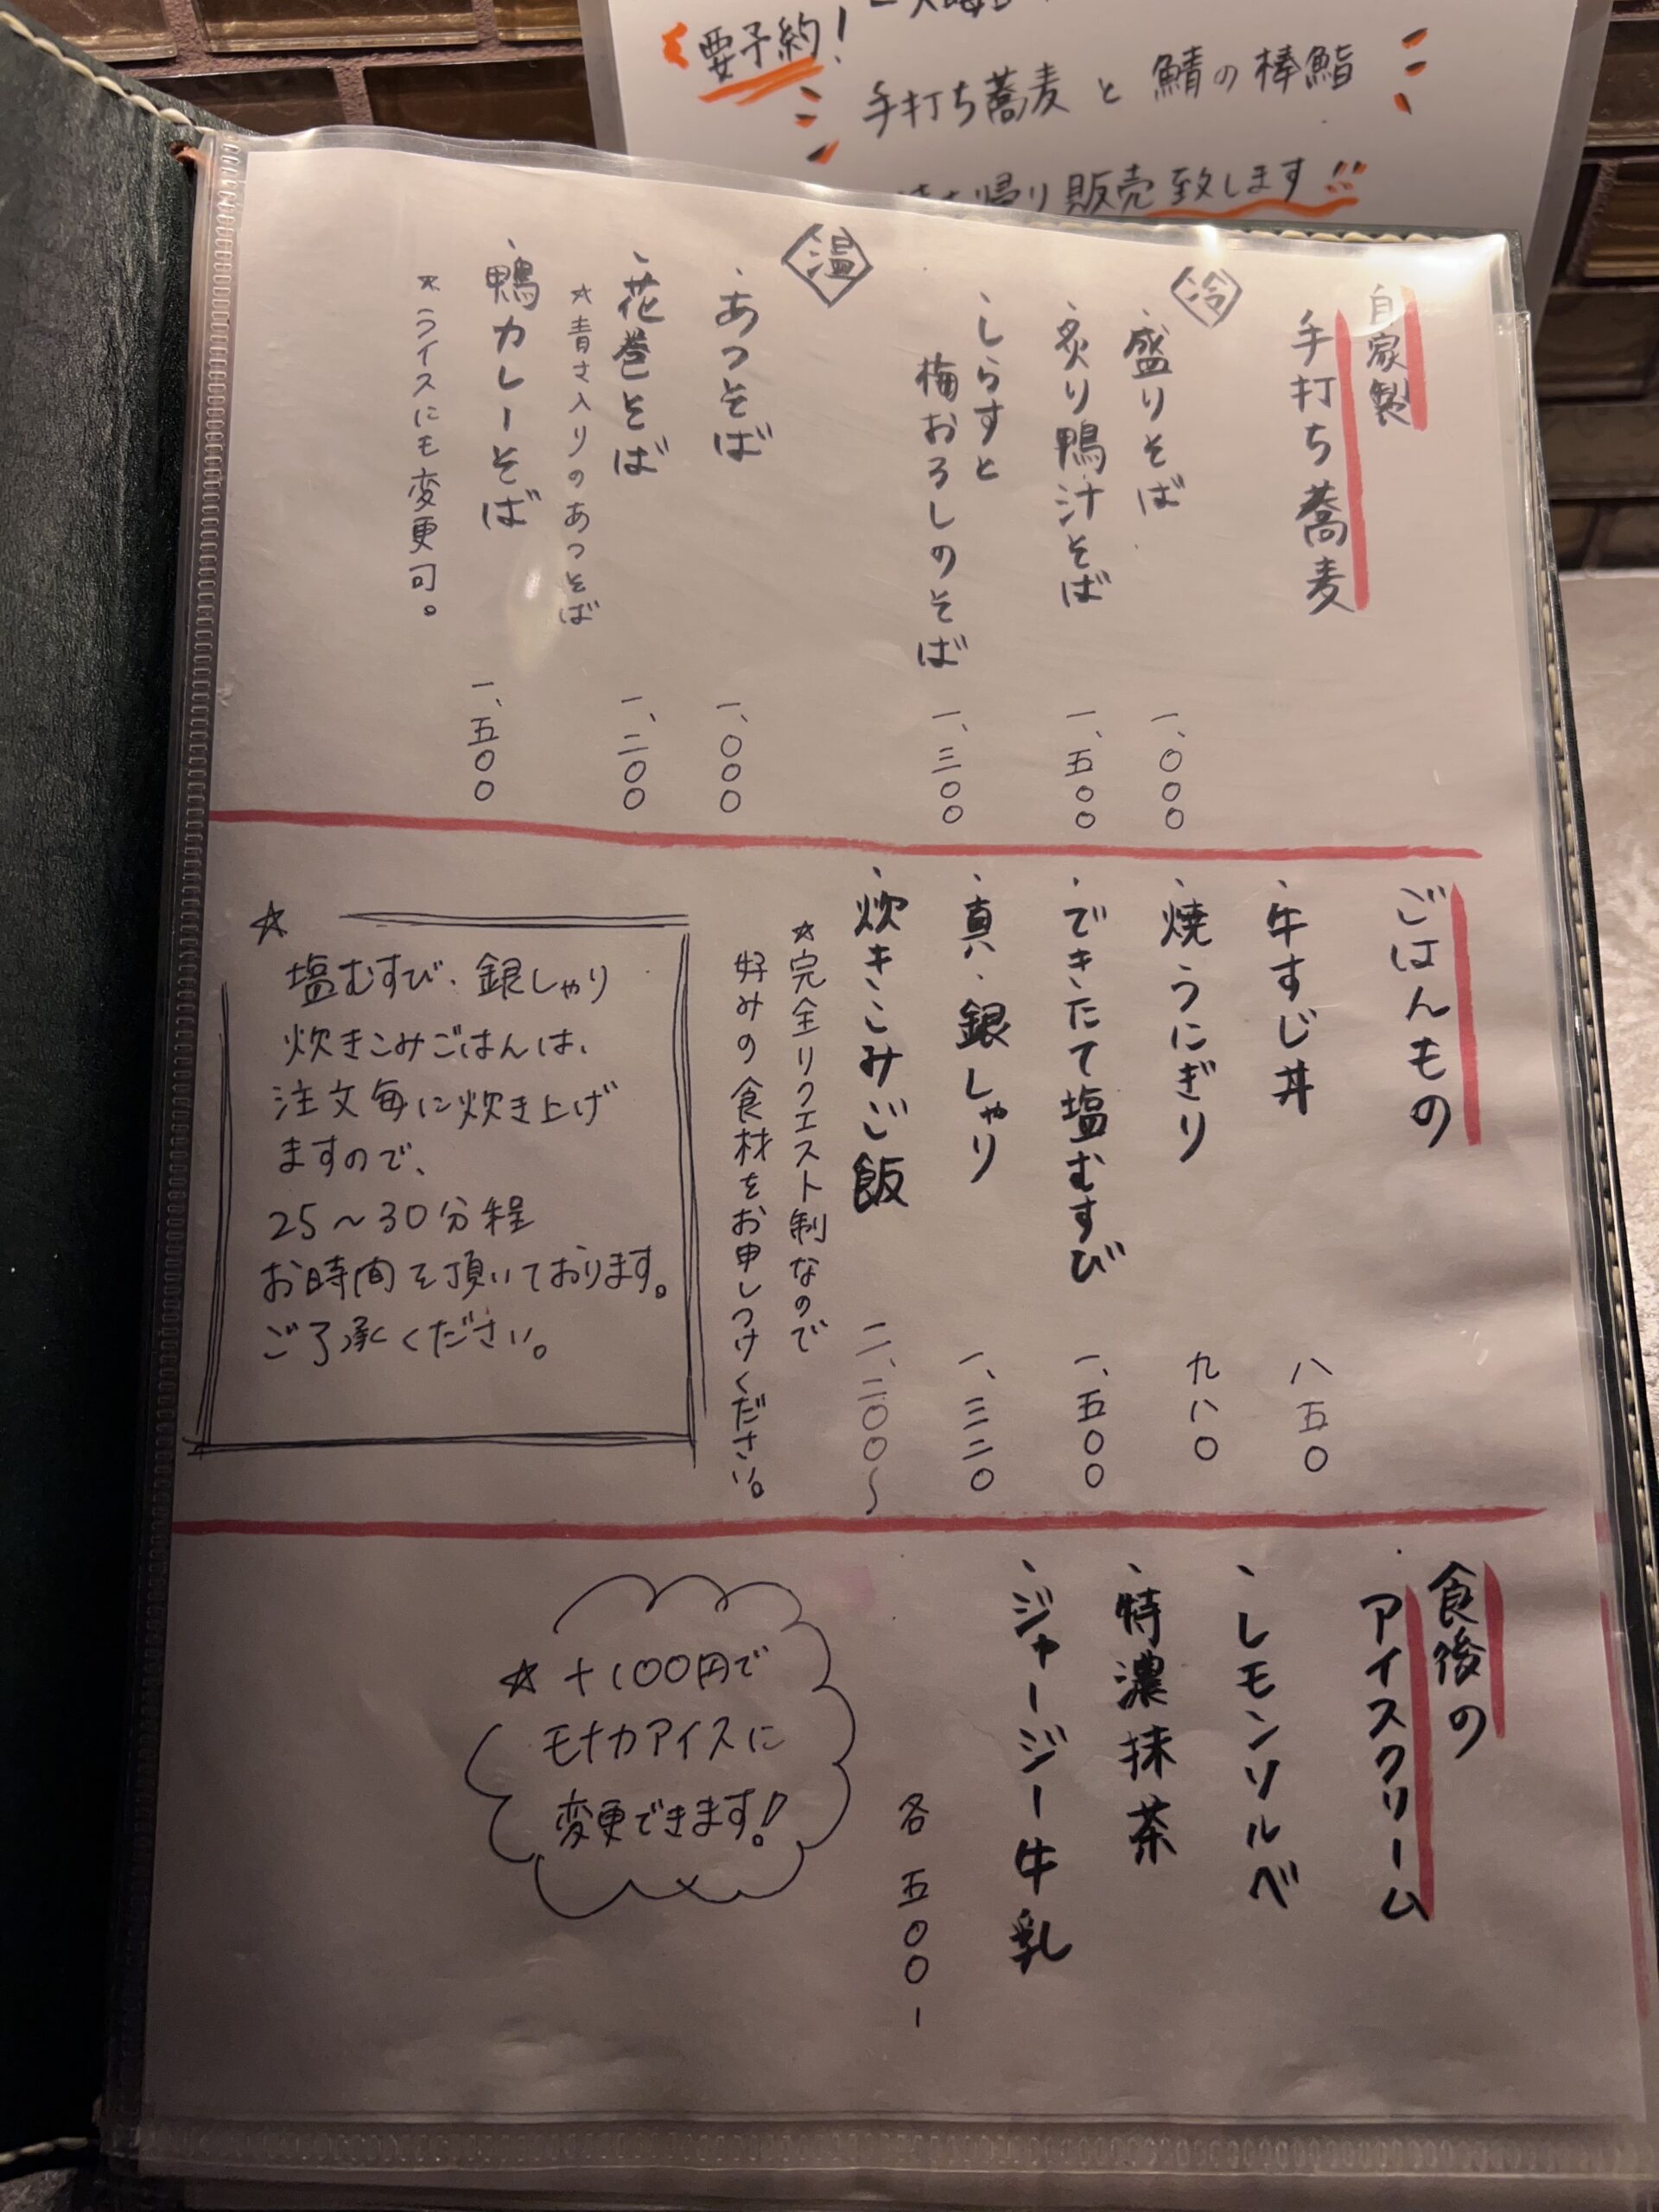 要予約!
手打ち蕎麦と鯖の棒鮨
帰り販売致します!!
自家製
手打ち蕎麦
冷
・盛りそば 一、〇〇〇
・炙り鴨汁そば 一、五〇〇
・しらすと
梅おろしのそば 一、三〇〇
温
・あつそば 一、〇〇〇
・花巻そば 一、二〇〇
☆青さ入りのあつそば
・鴨カレーそば 一、五〇〇
☆ライスにモ変更可。
ごはんもの
・牛すじ丼 八五〇
・焼うにぎり 九八〇
・できたて塩むすび 一、五〇〇
・真・銀しゃり 一、三二〇
・炊きこみご飯 二、二〇〇〜
☆完全リクエスト制なので
好みの食材をお申しつけください。
☆
塩むすび、銀しゃり
炊きこみごはんは、
注文毎に炊き上げ
ますので、
25〜30分程
お時間を頂いております。
ご了承ください。
食後の
アイスクリーム
・レモンソルベ
・特濃抹茶
・ジャージー牛乳
各五〇〇ー
☆+100円で
モナカアイスに
変更できます!